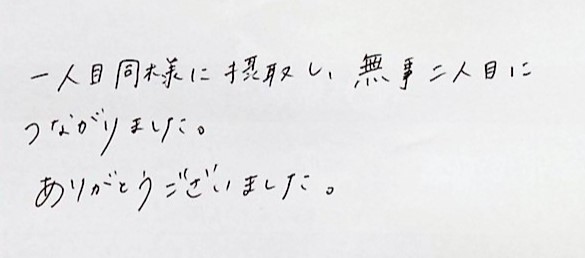 一人目同様に摂取し、無事二人目に
つながりました。
ありがとうございました。